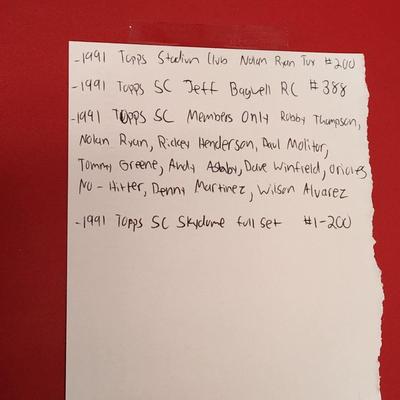 -1991 Topps Stadium Club Nolan Ryan Tux #200
-1991 Topps SC Jeff Bagwell RC #388
-1991 Topps SC Members Only Robby Thompson,
Nolan Ryan, Rickey Henderson, Paul Molitor,
Tommy Greene, Andy Ashby, Dave Winfield, Orioles
No-Hitter, Denny Martinez, Wilson Alvarez
-1991 Topps SC Skydome full set #1-200